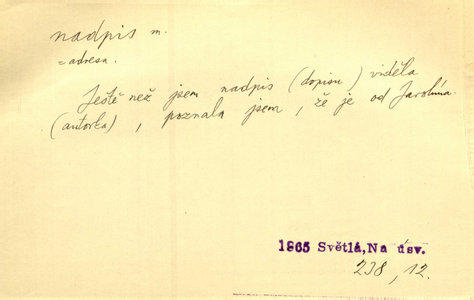 nadpis m.
= adresa.
Ještě než jsem nadpis (dopisu) viděla
(autorka), poznala jsem, že je od Jarolíma.
1965 Světlá, Na úsv.
238, 12.